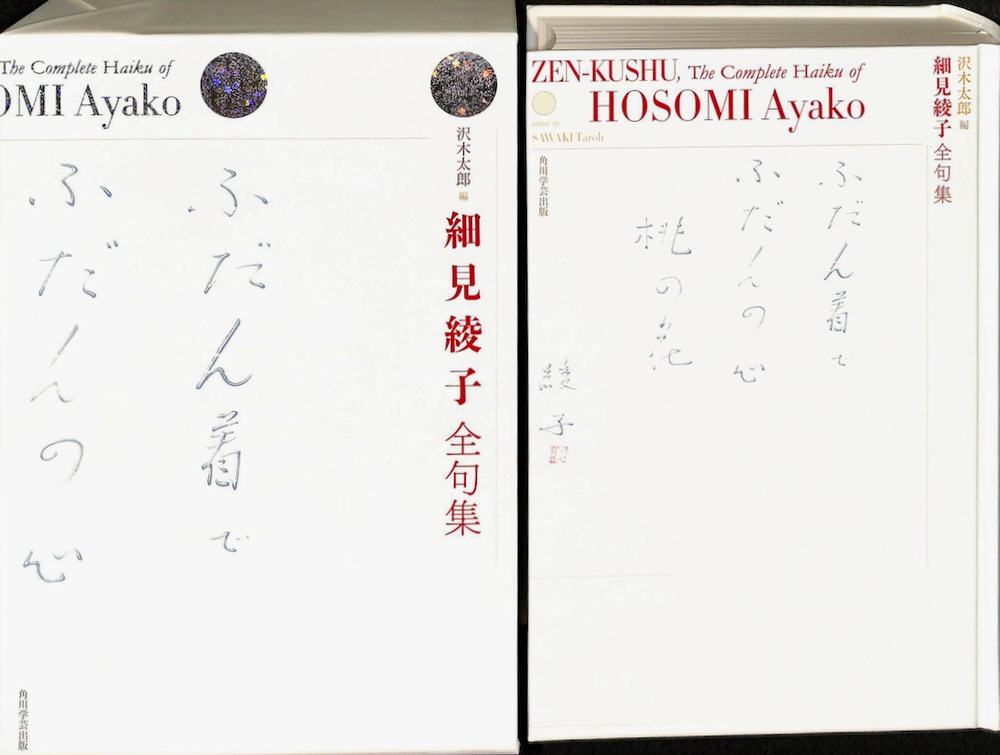 The Complete Haiku of
OMI Ayako
沢木太郎 編
細見綾子 全句集
ふだん着で
ふだんの心
角川学芸出版
ZEN-KUSHU, The Complete Haiku of
HOSOMI Ayako
edited by
SAWAKI Taroh
沢木太郎 編
細見綾子 全句集
ふだん着で
ふだんの心
桃の花
綾子
角川学芸出版